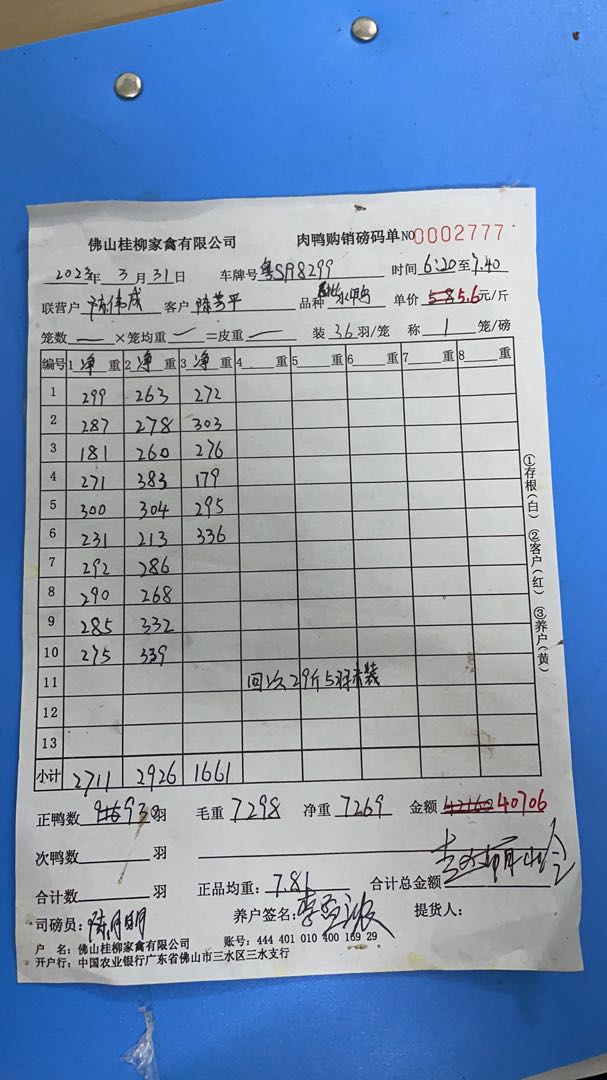 佛山桂柳家禽有限公司 肉鸭购销磅码单 NO 0002777
2023年 3月31日 车牌号 粤SA8299 时间 6:20至7.40
联营户 客户 品种 水鸭 单价 5.6元/斤
笼数 — ×笼均重 — =皮重 — 装 36 羽/笼 称 1 笼/磅
编号 1 净 重 2 净 重 3 净 重 4 重 5 重 6 重 7 重 8 重
1 299 263 272
2 287 278 303
3 181 260 276
4 271 383 179
5 300 304 295
6 231 213 336
7 292 286
8 290 268
9 285 332
10 275 339
11 回次29斤5羽未装
12
13
小计 2711 2926 1661
①存根(白) ②客户(红) ③养户(黄)
正鸭数 930 羽 毛重 7298 净重 7269 金额 42160 40706
次鸭数 羽
合计数 羽 正品均重: 7.81 合计总金额
司磅员: 陈月明 养户签名: 提货人:
户 名: 佛山桂柳家禽有限公司 账号: 444 401 010 400 169 29
开户行: 中国农业银行广东省佛山市三水区三水支行